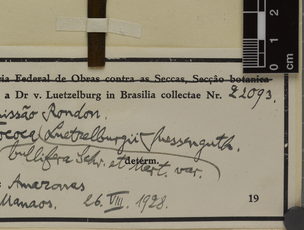 ria Federal de Obras contra as Seccas, Secção botanica
a Dr v. Luetzelburg in Brasilia collectae Nr. 22093.
issão Rondon.
Luetzelburgii Messenguth.
bullifera Schr. et Mart. var.
determ.
Amazonas
Manaos. 26. VIII. 1928.
19
0 1 2